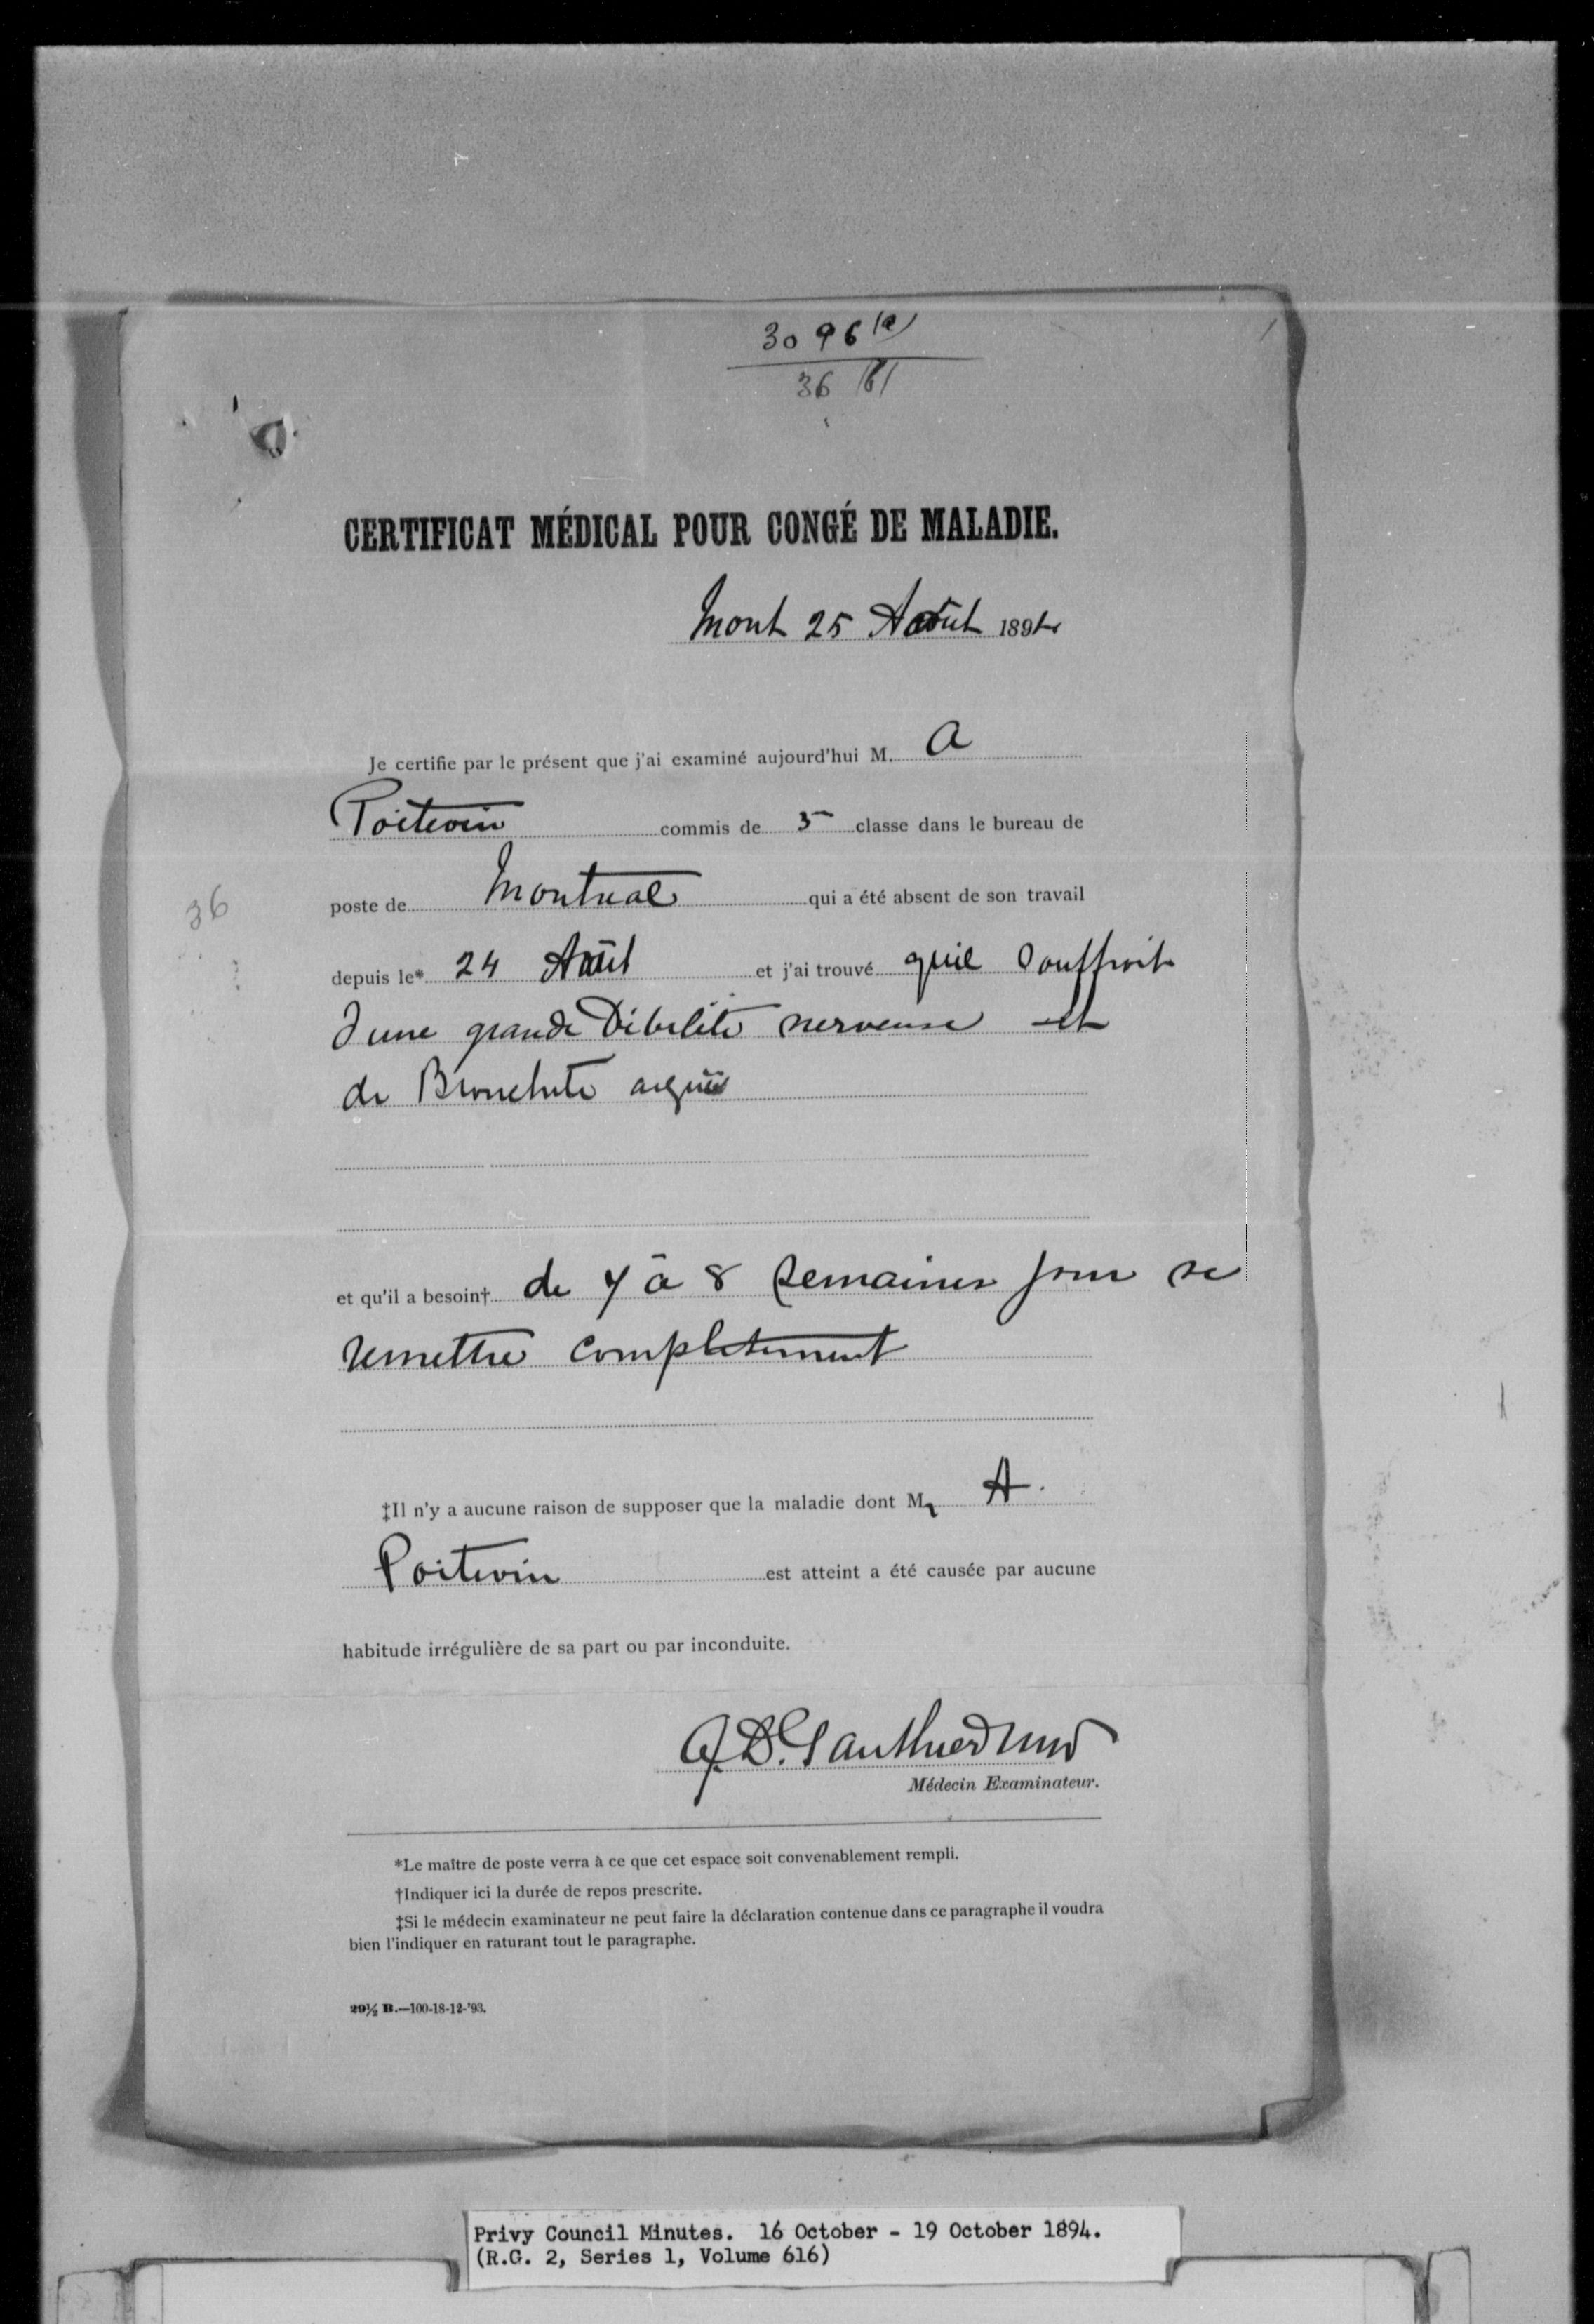 3096 (a)
36 (6)
CERTIFICAT MÉDICAL POUR CONGÉ DE MALADIE.
Mont 25 Août 1894
Je certifie par le présent que j'ai examiné aujourd'hui M. A
Poitevin commis de 3 classe dans le bureau de
poste de Montreal qui a été absent de son travail
36
depuis le* 24 Août et j'ai trouvé quil souffroit
d'une grande Débilité nerveuse et
de Bronchite aigüe
et qu'il a besoin† de 7 à 8 semaines pour se
remettre completement
‡Il n'y a aucune raison de supposer que la maladie dont M. A.
Poitevin est atteint a été causée par aucune
habitude irrégulière de sa part ou par inconduite.
Gauthier MD
Médecin Examinateur.
*Le maître de poste verra à ce que cet espace soit convenablement rempli.
†Indiquer ici la durée de repos prescrite.
‡Si le médecin examinateur ne peut faire la déclaration contenue dans ce paragraphe il voudra
bien l'indiquer en raturant tout le paragraphe.
29½ B.—100-18-12-'93.
Privy Council Minutes. 16 October - 19 October 1894.
(R.G. 2, Series 1, Volume 616)